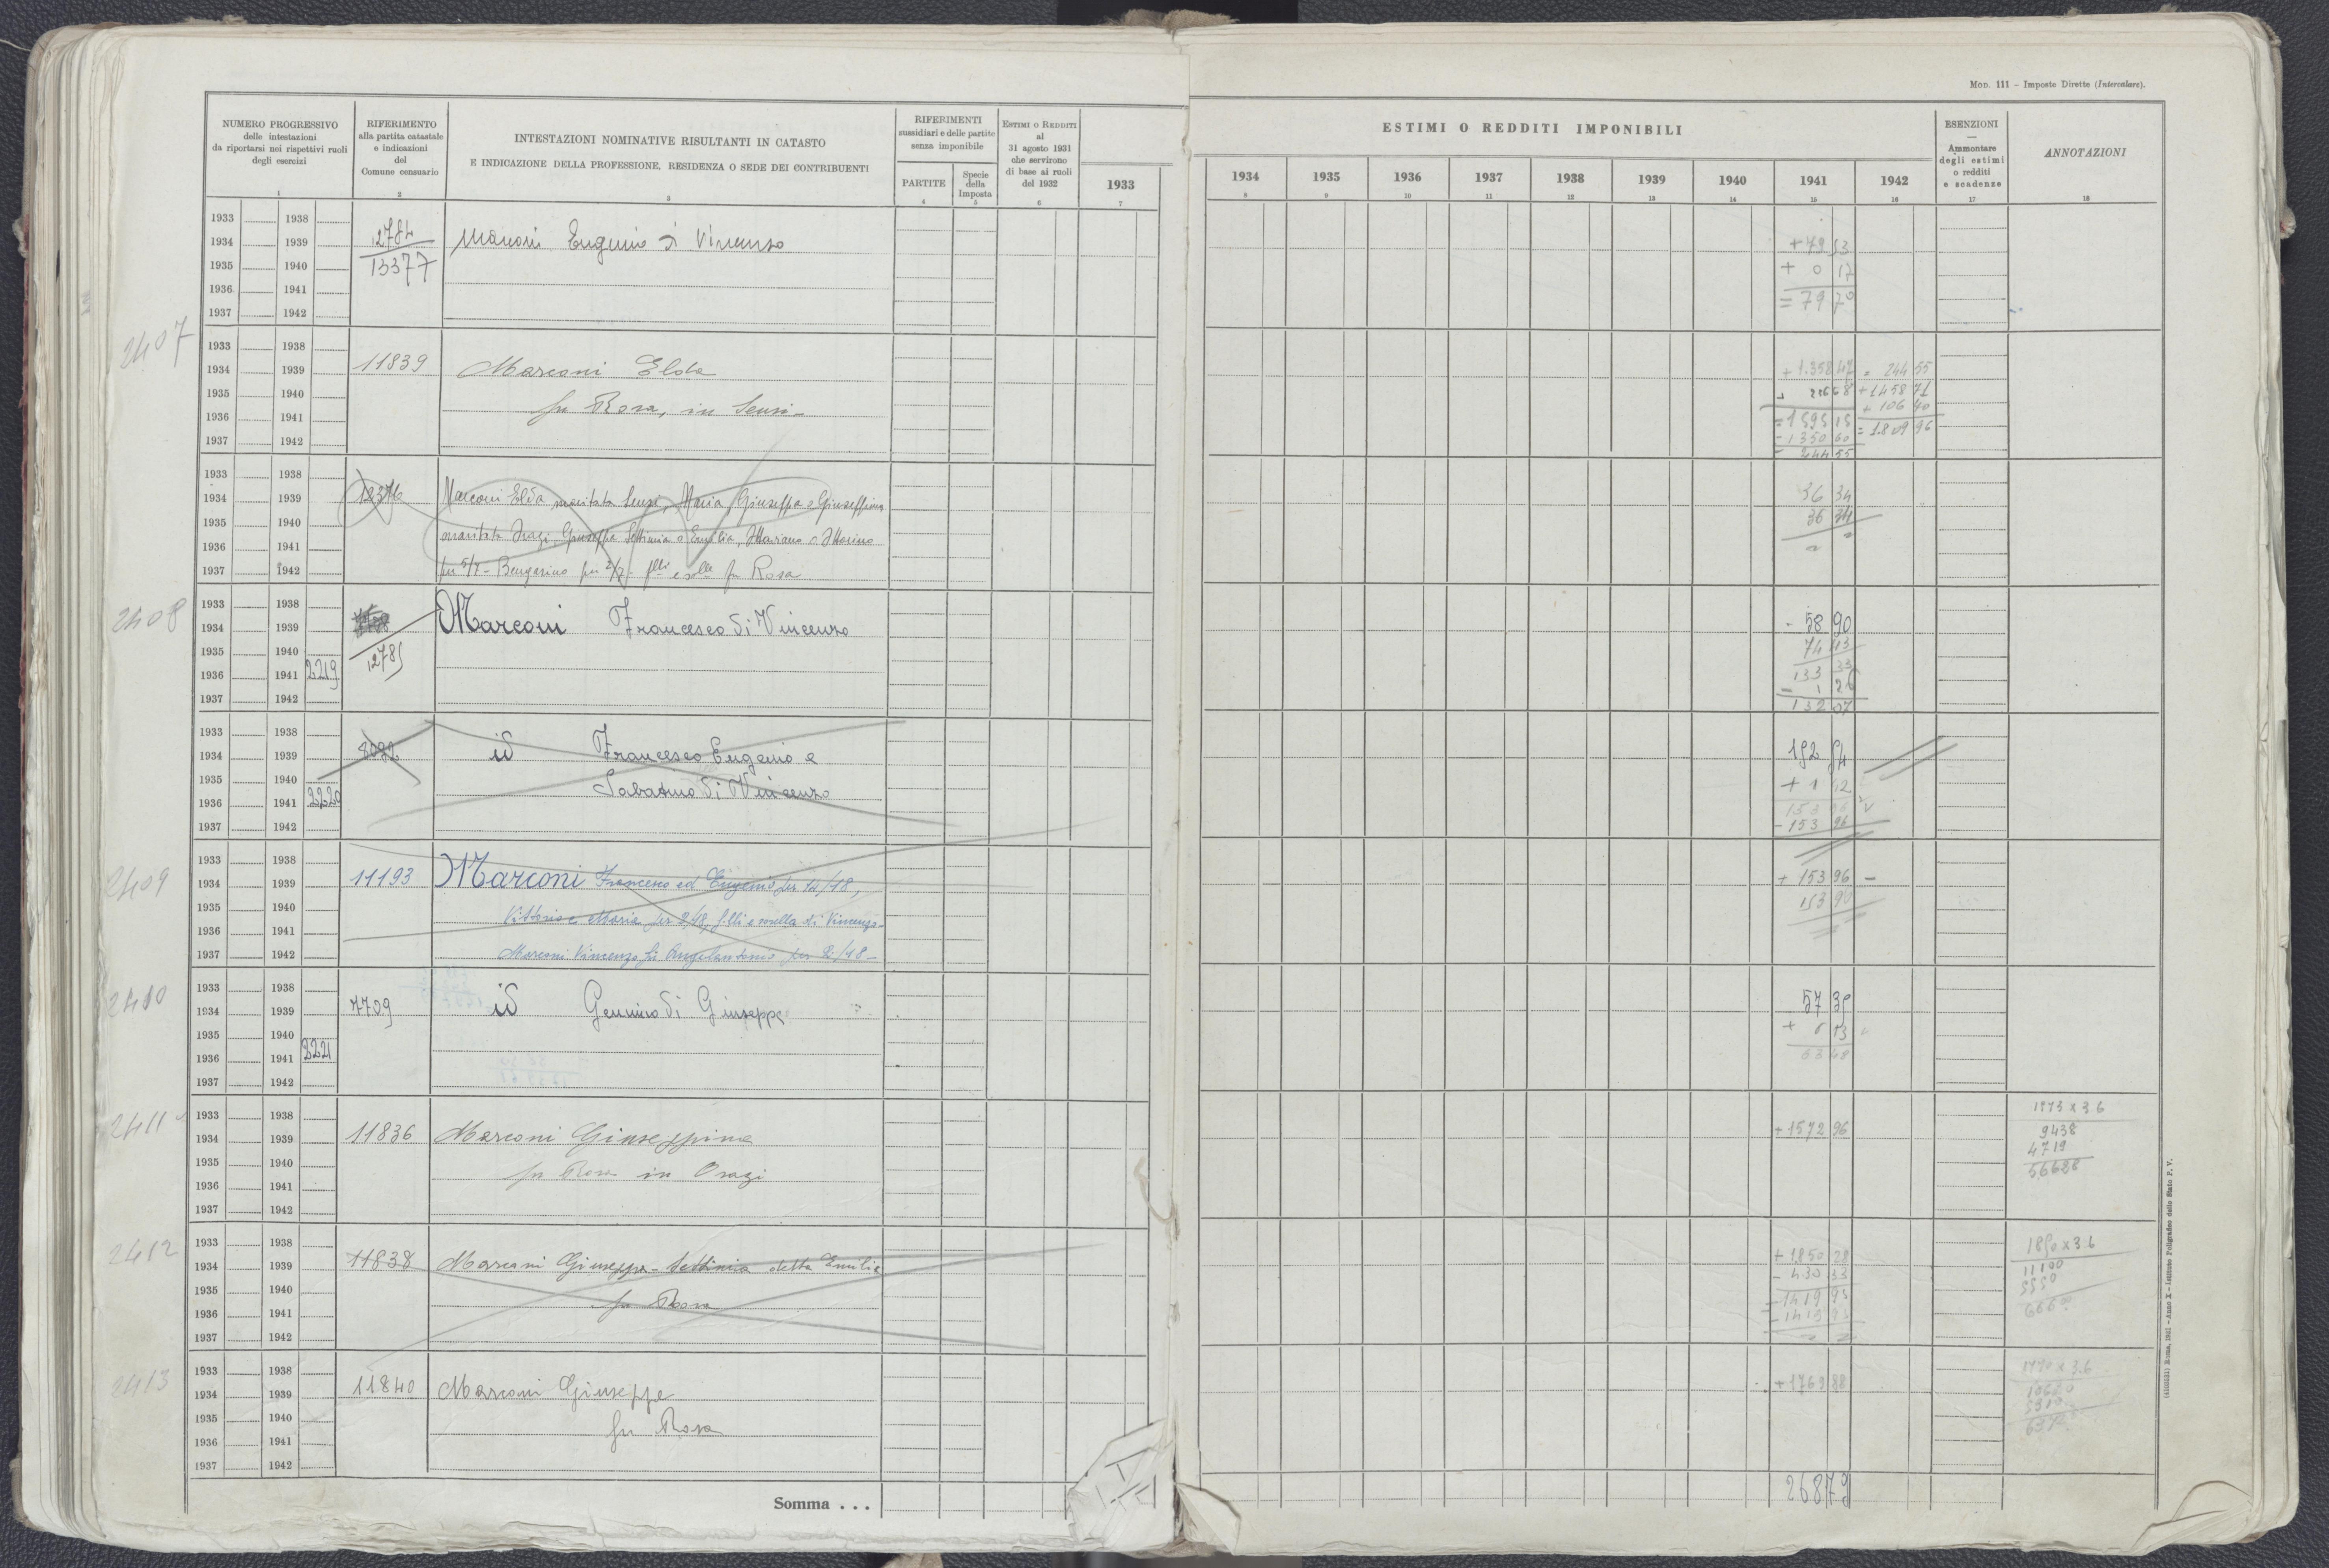 Mod. 111 - Imposte Dirette (Intercalare).
NUMERO PROGRESSIVO
delle intestazioni
da riportarsi nei rispettivi ruoli
degli esercizi
1
RIFERIMENTO
alla partita catastale
e indicazioni
del
Comune censuario
2
INTESTAZIONI NOMINATIVE RISULTANTI IN CATASTO
E INDICAZIONE DELLA PROFESSIONE, RESIDENZA O SEDE DEI CONTRIBUENTI
3
RIFERIMENTI
sussidiari e delle partite
senza imponibile
PARTITE
4
Specie
della
Imposta
5
ESTIMI O REDDITI
al
31 agosto 1931
che servirono
di base ai ruoli
del 1932
6
1933
7
ESTIMI O REDDITI IMPONIBILI
1934 1935 1936 1937 1938 1939 1940 1941 1942
8 9 10 11 12 13 14 15 16
ESENZIONI
—
Ammontare
degli estimi
o redditi
e scadenze
17
ANNOTAZIONI
18
1933 1938
1934 1939
1935 1940
1936 1941
1937 1942
12784
13377
Marconi Eugenio di Vincenzo
+ 79 53
+ 0 17
= 79 70
2407
1933 1938
1934 1939
1935 1940
1936 1941
1937 1942
11839
Marconi Elda
fu Rosa, in Sensi
+ 1.358 47 = 244 55
+ 1458 71
+ 106 40
= 1595 15
= 1.809 96
- 1350 60
= 244 55
1933 1938
1934 1939
1935 1940
1936 1941
1937 1942
12376
Marconi Elda maritata Sensi, Maria, Giuseppa o Giuseppina
maritata Orazi, Giuseppa Settimia o Emilia,
per 5/7 - Bengasino per 2/7 - f.lli e s.lle fu Rosa
36 34
36 34
2408
1933 1938
1934 1939
1935 1940
1936 1941 2219
1937 1942
12785
Marconi Francesco di Vincenzo
58 90
74 43
133 33
- 1 26
132 07
1933 1938
1934 1939
1935 1940
1936 1941 2220
1937 1942
8092
id Francesco Eugenio e
Sabatino di Vincenzo
152 54
+ 1 42
153 96
- 153 96
2409
1933 1938
1934 1939
1935 1940
1936 1941
1937 1942
11193
Marconi Francesco ed Eugenio per 14/18,
Vittorio e Maria per 2/18, f.lli e sorella di Vincenzo
Marconi Vincenzo fu Angelantonio per 2/18 -
+ 153 96 -
153 96
2410
1933 1938
1934 1939
1935 1940
1936 1941 2221
1937 1942
7709
id Gennino di Giuseppe
57 35
+ 6 13
63 48
2411
1933 1938
1934 1939
1935 1940
1936 1941
1937 1942
11836
Marconi Giuseppina
fu Rosa in Orazi
+ 1572 96
1573 x 3.6
9438
4719
56628
2412
1933 1938
1934 1939
1935 1940
1936 1941
1937 1942
11838
Marconi Giuseppa - Settimia detta Emilia
fu Rosa
+ 1850 28
- 430 33
= 1419 95
- 1419 95
1850 x 3.6
11100
5550
6660
2413
1933 1938
1934 1939
1935 1940
1936 1941
1937 1942
11840
Marconi Giuseppe
fu Rosa
+ 1769 88
1770 x 3.6
10620
5310
Somma . . .
26879
Roma, 1931 - Anno X - Istituto Poligrafico dello Stato P. V.